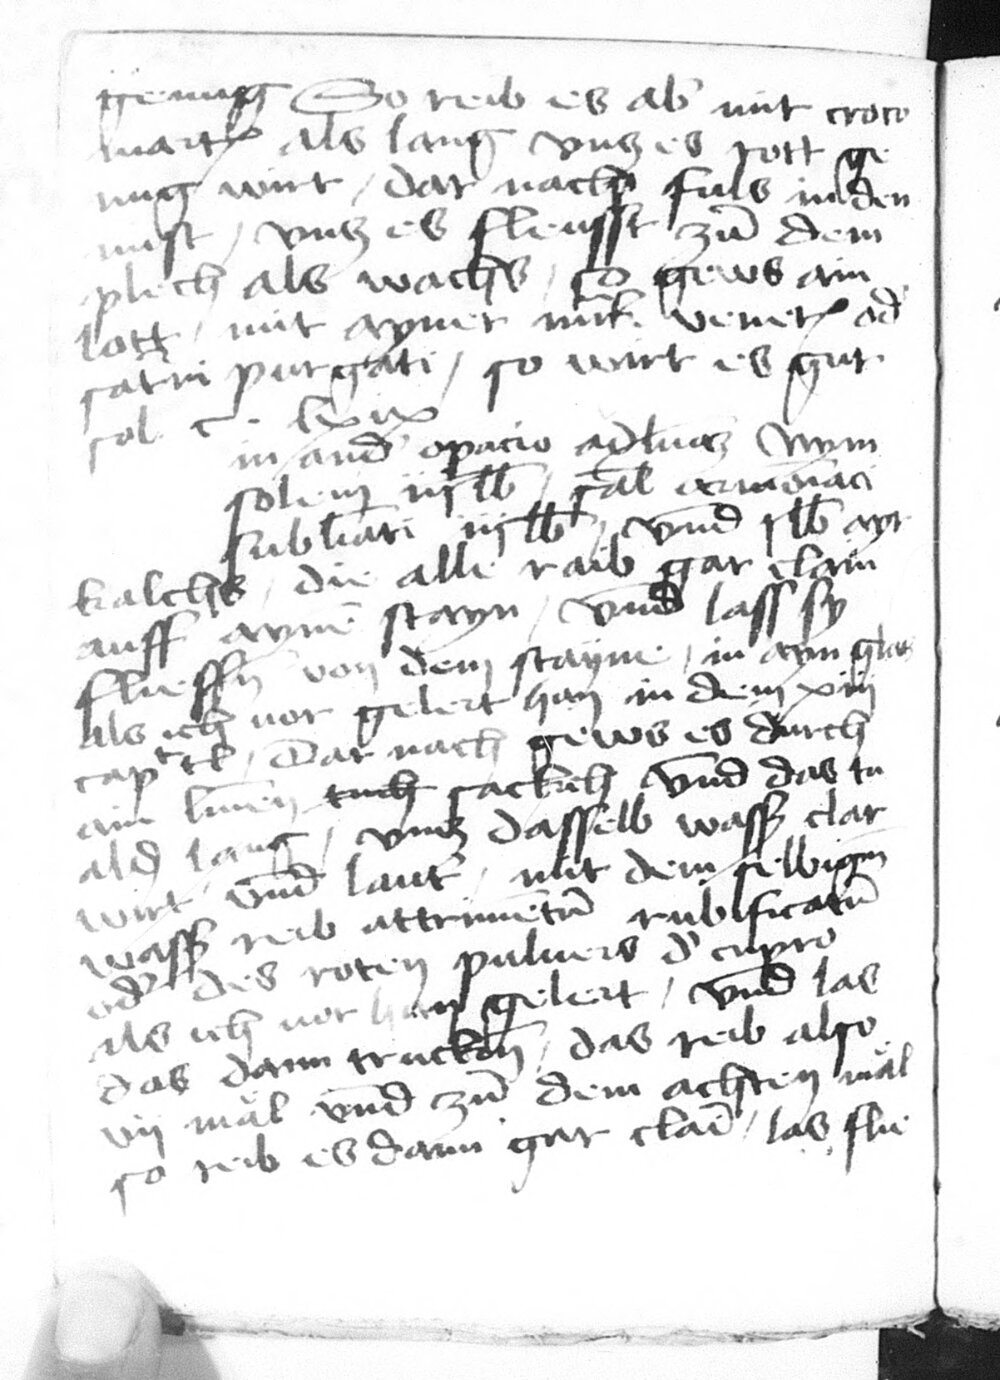 genug So reib es ab' mit croco
mart' als lang vncz es rott ge
nug wirt / dar nach fuls in den
mist / vncz es fleusst zu dem
plech als wachs / so gews ain
lott / mit ayner mk. vener' od'
saturni purgati / so wirt es gut
sol c. lxix
in and' opacio ad luaz Nym
solem iij lb / sal armoniaci
sublimati iij lb / vnd j lb ayr
kalchs / die alle raib gar clain
auff ayne stayn / vnd lass sy
fliessn von dem stayne / in aym glas
als ich vor gelert han in dem xiiij
capitel / Dar nach gews es durch
ain linen tuch sacklich vnd das tu
als lang / vncz dasselb wasser clar
wirt vnd laut' / mit dem selbigen
wasser reib attrimentu rubificatu
od' des roten puluers d' cupro
als ich vor han gelert / vnd las
das dann truckn / das reib also
vij mäl vnd zu dem achten mäl
so reib es dann gar clai / las flie